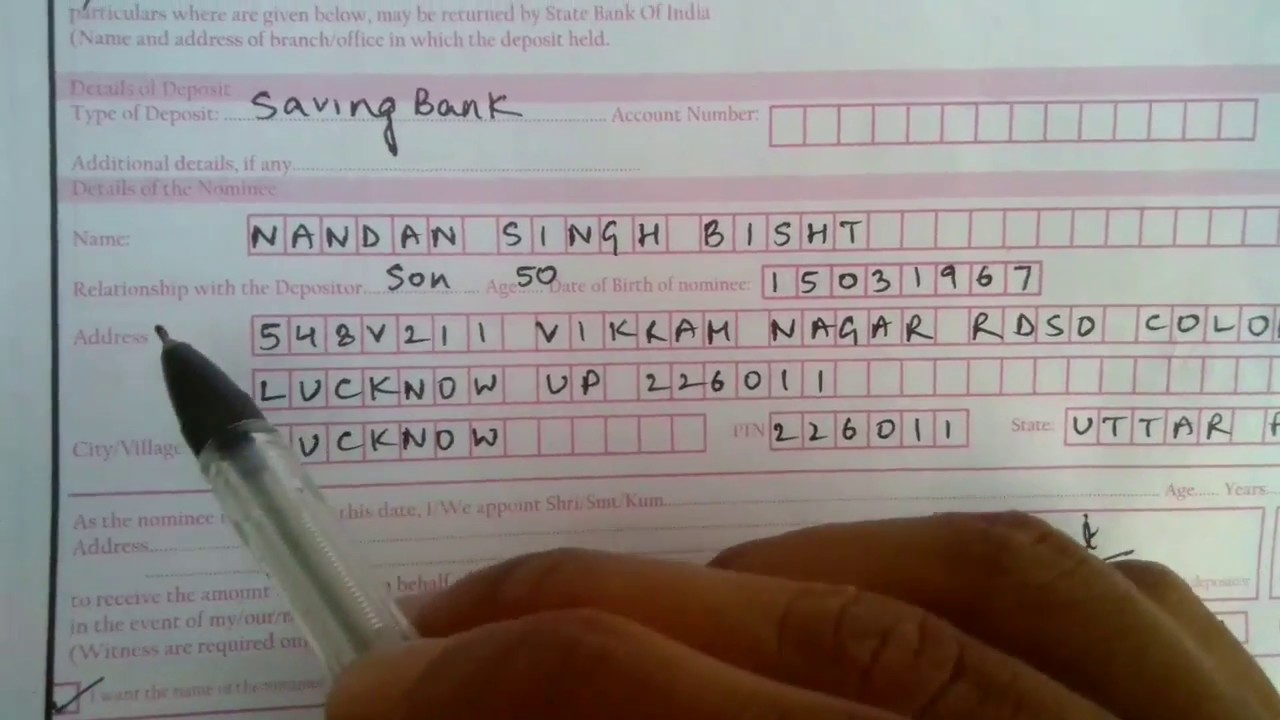 particulars where are given below, may be returned by State Bank Of India
(Name and address of branch/office in which the deposit held.
Details of Deposit
Type of Deposit: Saving Bank Account Number:
Additional details, if any
Details of the Nominee
Name: NANDAN SINGH BISHT
Relationship with the Depositor Son Age 50 Date of Birth of nominee: 15031967
Address 548V211 VIKRAM NAGAR RDSO COLO
LUCKNOW UP 226011
City/Village UCKNOW PIN 226011 State: UTTAR
As the nominee this date, I/We appoint Shri/Smt/Kum Age Years
Address
behalf
to receive the amount depositor
in the event of my/our/
(Witness are required on
I want the name of the nominee